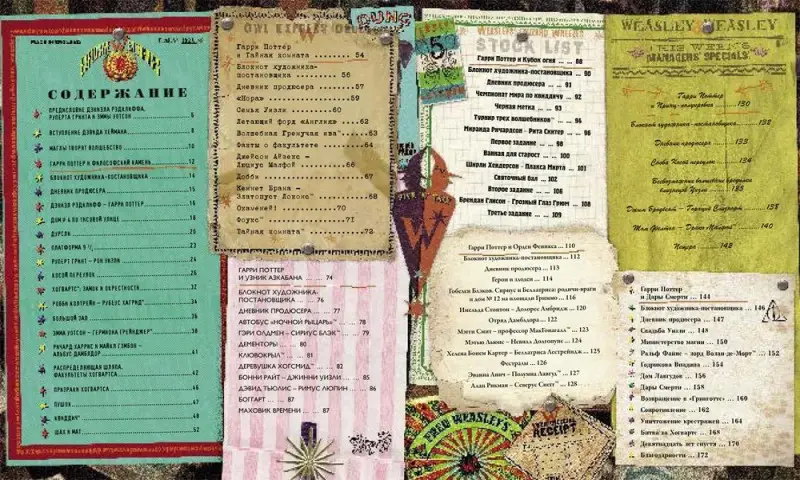 СОДЕРЖАНИЕ
ПРЕДИСЛОВИЕ ДЭНИЭЛА РЭДКЛИФФА,
РУПЕРТА ГРИНТА И ЭММЫ УОТСОН 6
ВСТУПЛЕНИЕ ДЭВИДА ХЕЙМАНА 8
МАГЛЫ ТВОРЯТ ВОЛШЕБСТВО 10
ГАРРИ ПОТТЕР И ФИЛОСОФСКИЙ КАМЕНЬ 12
БЛОКНОТ ХУДОЖНИКА-ПОСТАНОВЩИКА 14
ДНЕВНИК ПРОДЮСЕРА 15
ДЭНИЭЛ РЭДКЛИФФ – ГАРРИ ПОТТЕР 16
ДОМ № 4 ПО ТИСОВОЙ УЛИЦЕ 18
ДУРСЛИ 20
ПЛАТФОРМА 9 ¾
РУПЕРТ ГРИНТ – РОН УИЗЛИ 24
КОСОЙ ПЕРЕУЛОК 26
ХОГВАРТС: ЗАМОК И ОКРЕСТНОСТИ
РОББИ КОЛТРЕЙН – РУБЕУС ХАГРИД
БОЛЬШОЙ ЗАЛ 36
ЭММА УОТСОН – ГЕРМИОНА ГРЕЙНДЖЕР
РИЧАРД ХАРРИС И МАЙКЛ ГЭМБОН –
АЛЬБУС ДАМБЛДОР 41
РАСПРЕДЕЛЯЮЩАЯ ШЛЯПА.
ФАКУЛЬТЕТЫ ХОГВАРТСА 42
ПРИЗРАКИ ХОГВАРТСА 46
ПУШОК 47
КВИДДИЧ 48
ШАХМАТ 52
Гарри Поттер
и Тайная комната 54
Блокнот художника-
постановщика 56
Дневник продюсера 57
«Нора» 59
Семья Уизли 60
Летающий форд «Англия» 62
Волшебная Гремучая ива 63
Факты о факультете 64
Джейсон Айзекс –
Люциус Малфой 66
Добби 67
Кеннет Брана –
Златопуст Локонс 68
Окаменей! 70
Фоукс 71
Тайная комната 72
ГАРРИ ПОТТЕР
И УЗНИК АЗКАБАНА 74
БЛОКНОТ ХУДОЖНИКА-
ПОСТАНОВЩИКА 76
ДНЕВНИК ПРОДЮСЕРА 77
АВТОБУС «НОЧНОЙ РЫЦАРЬ» 78
ГЭРИ ОЛДМЕН – СИРИУС БЛЭК 79
ДЕМЕНТОРЫ 80
КЛЮВОКРЫЛ 81
ДЕРЕВУШКА ХОГСМИД 82
БОННИ РАЙТ – ДЖИННИ УИЗЛИ 85
ДЭВИД ТЬЮЛИС – РИМУС ЛЮПИН 86
БОГГАРТ 87
МАХОВИК ВРЕМЕНИ 87
STOCK LIST
Гарри Поттер и Кубок огня 88
Блокнот художника-постановщика 90
Дневник продюсера 91
Чемпионат мира по квиддичу 92
Черная метка 93
Турнир трех волшебников 96
Миранда Ричардсон – Рита Скитер 96
Первое задание 98
Ванная для старост 100
Ширли Хендерсон – Плакса Миртл 101
Святочный бал 102
Второе задание 106
Брендан Глисон – Грозный Глаз Грюм 108
Третье задание 109
Гарри Поттер и Орден Феникса 110
Блокнот художника-постановщика 112
Дневник продюсера 113
Герои и злодеи 114
Гобелен Блэков. Сириус и Беллатриса: родичи-враги
и дом № 12 на площади Гриммо 116
Имельда Стонтон – Долорес Амбридж 120
Отряд Дамблдора 122
Мэгги Смит – профессор МакГонагалл 123
Мэтью Льюис – Невилл Долгопупс 124
Хелена Бонем Картер – Беллатриса Лестрейндж 125
Фестралы 126
Эванна Линч – Полумна Лавгуд 127
Алан Рикман – Северус Снегг 128
WEASLEY & WEASLEY
THIS WEEK'S
MANAGERS' SPECIALS
Гарри Поттер
и Принц-полукровка 130
Блокнот художника-постановщика 132
Дневник продюсера 133
Слава Нового 134
Всевозможные волшебные вредилки
близнецов Уизли 135
Джим Бродбент – Гораций Слизнорт 138
Том Фелтон – Драко Малфой 140
Пещера 142
Гарри Поттер
и Дары Смерти 144
Блокнот художника-постановщика 146
Дневник продюсера 147
Свадьба Уизли 148
Министерство магии 150
Ральф Файнс – лорд Волан-де-Морт 152
Годрикова Впадина 154
Дом Лавгудов 156
Дары Смерти 158
Возвращение в «Гринготтс» 160
Сопротивление 162
Уничтожение крестражей 164
Битва за Хогвартс 168
Девятнадцать лет спустя 170
Благодарности 172
FRED WEASLEY'S
RECEIPT